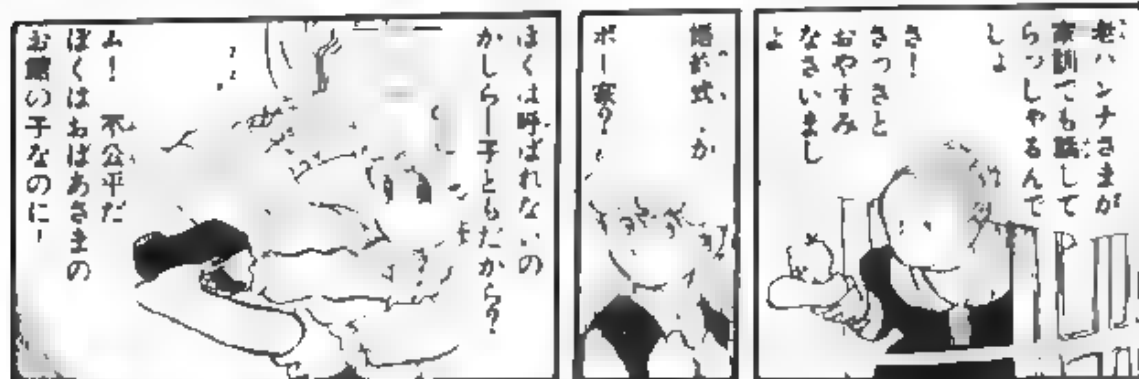 老ハンナさまが
家訓でも話して
らっしゃるんで
しょ
さ!
さっさと
おやすみ
なさいまし
よ
婚約式か
ポー家?
ぼくは呼ばれないの
かしらー子どもだから?
ム! 不公平だ
ぼくはおばあさまの
お館の子なのに!